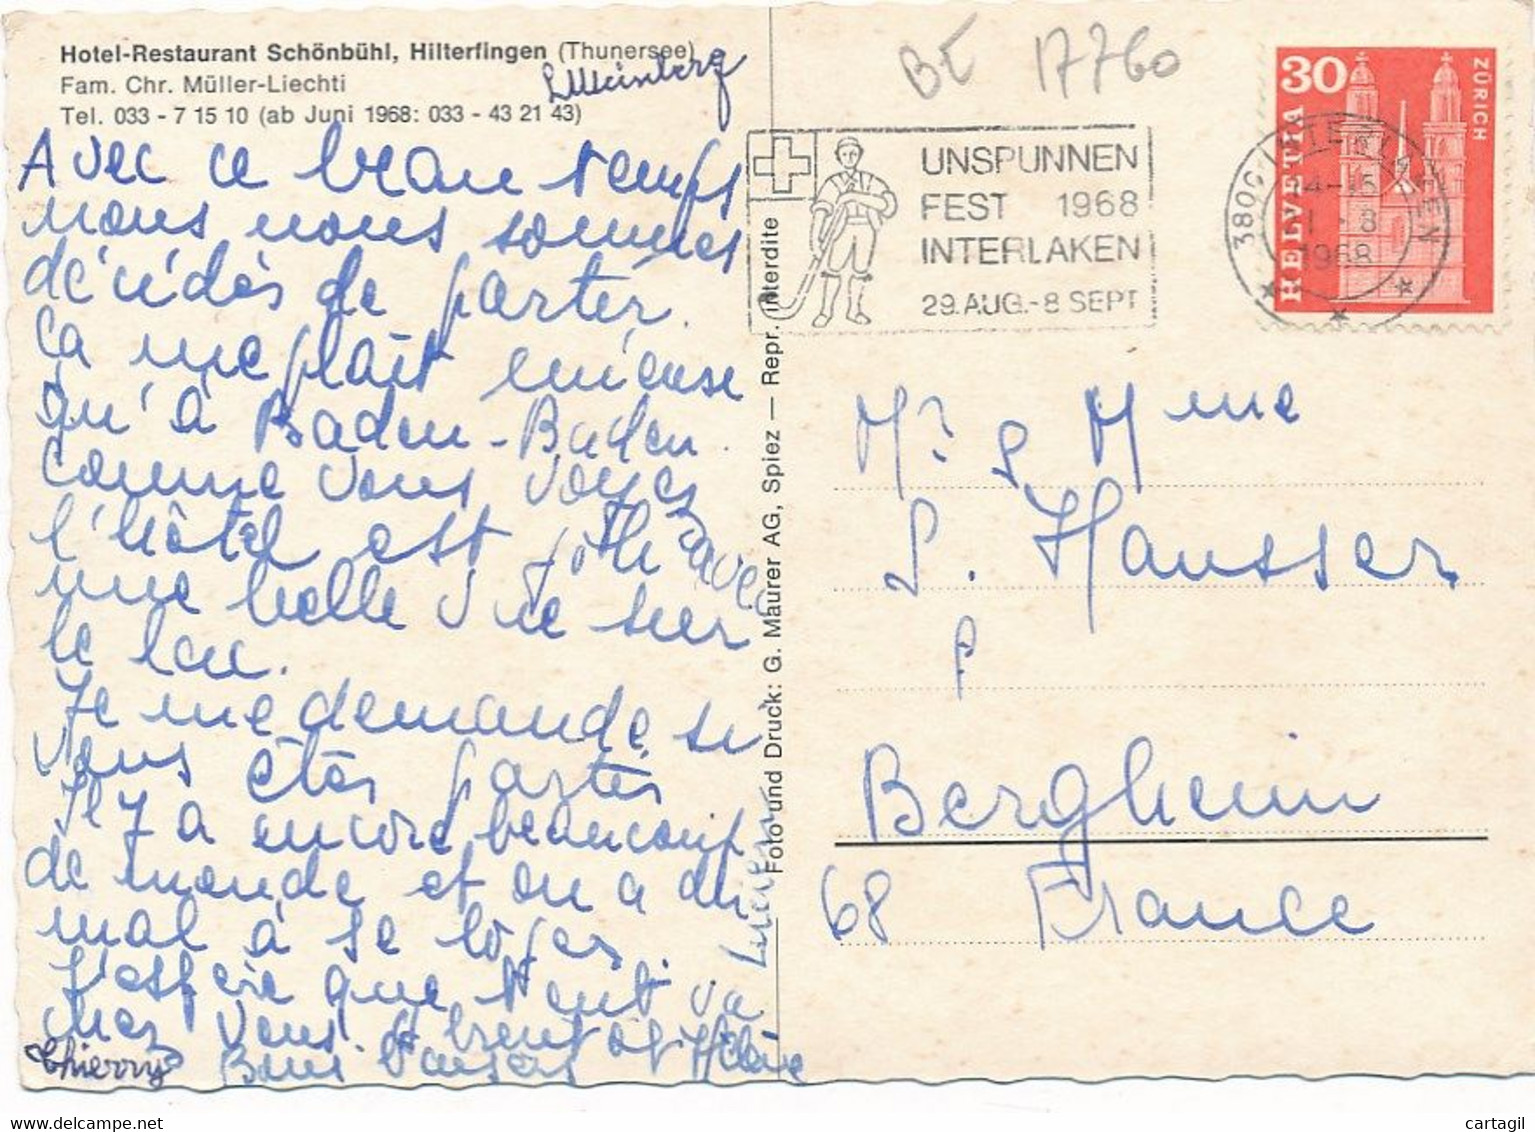 Hotel-Restaurant Schönbühl, Hilterfingen (Thunersee)
Fam. Chr. Müller-Liechti
Tel. 033 - 7 15 10 (ab Juni 1968: 033 - 43 21 43)
Avec ce beau temps
nous nous sommes
décidés de partir.
ça me plait mieuse
qu'à Baden-Baden.
comme vous voyez
l'hôtel est joli avec
une belle vue sur
le lac.
Je me demande si
vous êtes partis
Il y a encore beaucoup
de monde et on a du
mal à se loger.
J'espère que tout va
chez vous.
Bons baisers
Thierry
Hélène
Foto und Druck: G. Maurer AG, Spiez — Repr. interdite
BE 17760
UNSPUNNEN
FEST 1968
INTERLAKEN
29. AUG.-8 SEPT
30
HELVETIA
ZÜRICH
3800 INTERLAKEN
1968
Mr & Mme
L. Hausser
Bergheim
68 France
cartagil